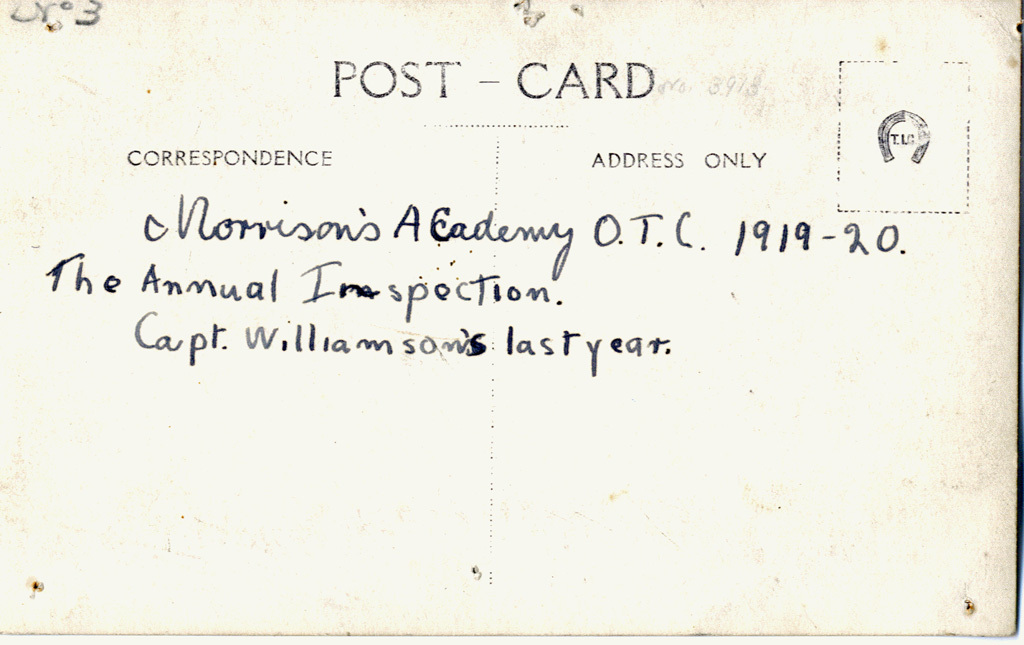 No 3
POST - CARD
CORRESPONDENCE
ADDRESS ONLY
Morrison's Academy O.T.C. 1919-20.
The Annual Inspection.
Capt. Williamson's last year.